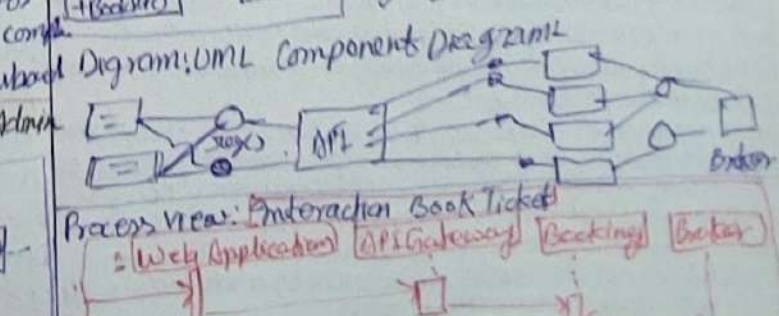 +Book
comp
Digram: UML Component Diagram
Admin
API
Broker
Process View: Interaction Book Ticket
Web Application API Gateway Booking Broker